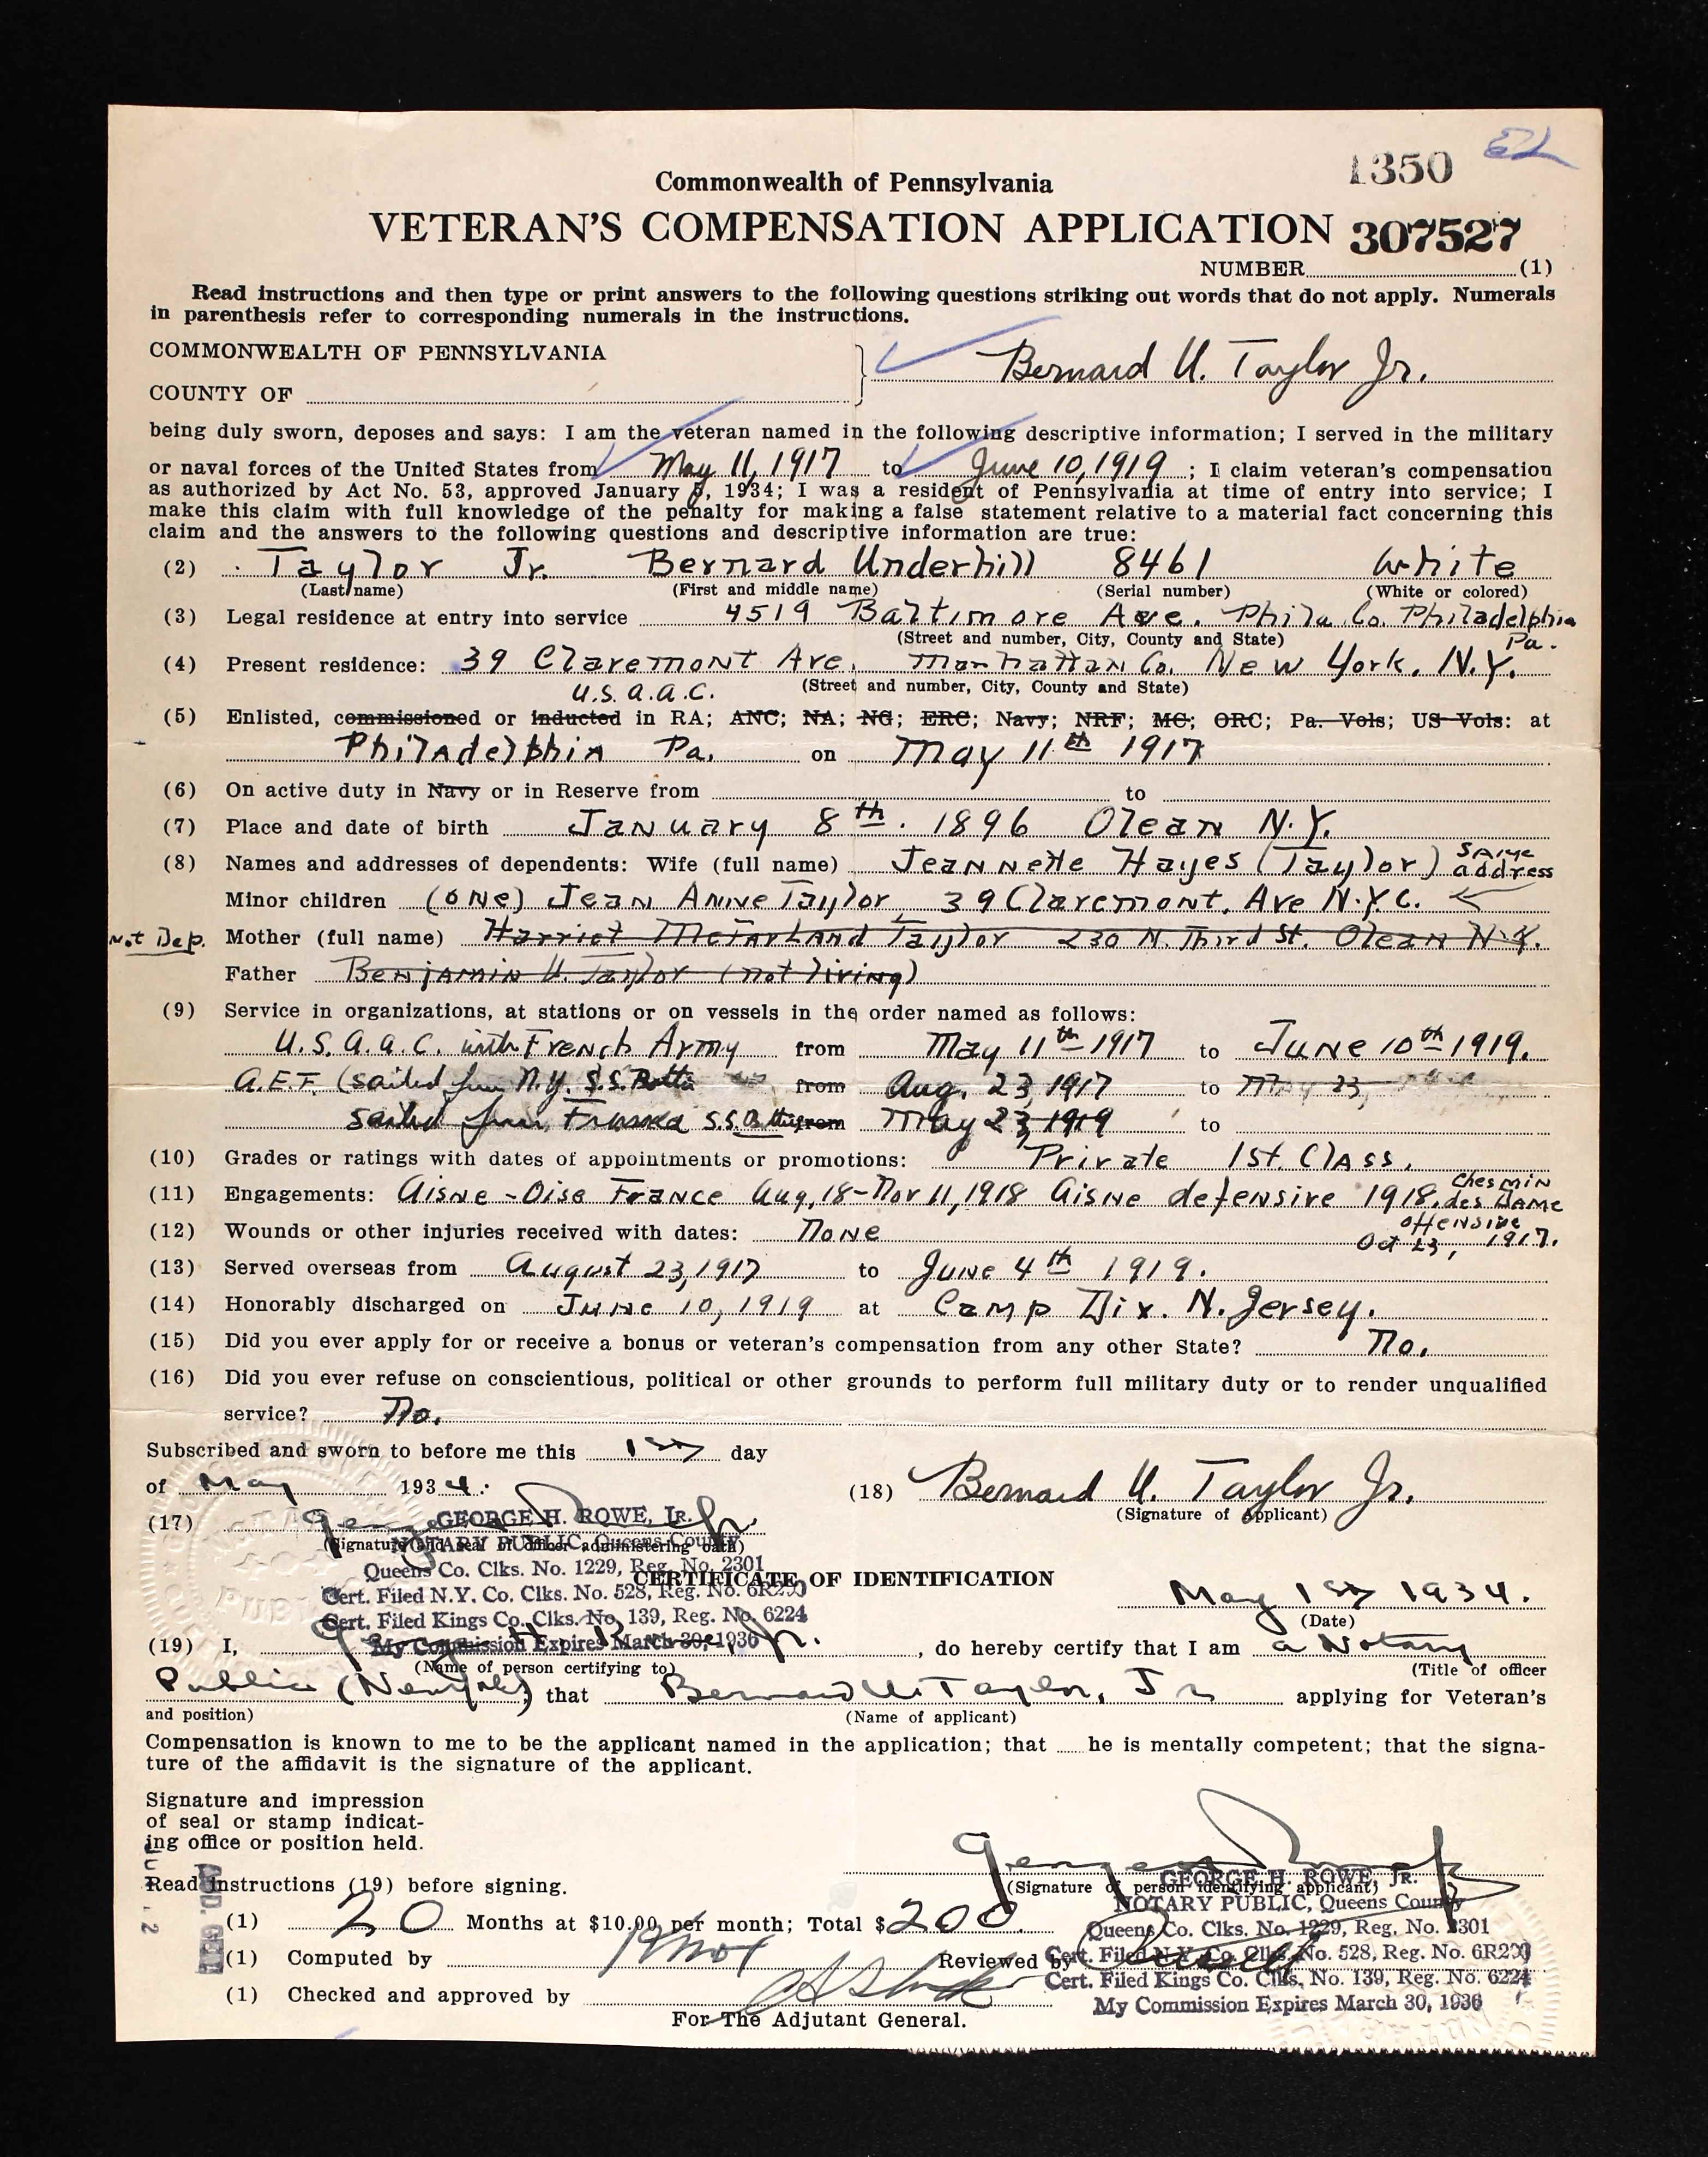 1350 EL
Commonwealth of Pennsylvania
VETERAN'S COMPENSATION APPLICATION 307527
NUMBER (1)
Read instructions and then type or print answers to the following questions striking out words that do not apply. Numerals
in parenthesis refer to corresponding numerals in the instructions.
COMMONWEALTH OF PENNSYLVANIA
Bernard U. Taylor Jr.
COUNTY OF
being duly sworn, deposes and says: I am the veteran named in the following descriptive information; I served in the military
or naval forces of the United States from May 11, 1917 to June 10, 1919; I claim veteran's compensation
as authorized by Act No. 53, approved January 5, 1934; I was a resident of Pennsylvania at time of entry into service; I
make this claim with full knowledge of the penalty for making a false statement relative to a material fact concerning this
claim and the answers to the following questions and descriptive information are true:
(2) Taylor Jr. Bernard Underhill 8461 White
(Last name) (First and middle name) (Serial number) (White or colored)
(3) Legal residence at entry into service 4519 Baltimore Ave. Phila. Co. Philadelphia
(Street and number, City, County and State) Pa.
(4) Present residence: 39 Claremont Ave. Manhattan Co. New York. N.Y.
U.S.A.A.C. (Street and number, City, County and State)
(5) Enlisted, commissioned or inducted in RA; ANC; NA; NG; ERC; Navy; NRF; MC; ORC; Pa. Vols; US Vols: at
Philadelphia Pa. on May 11th 1917
(6) On active duty in Navy or in Reserve from to
(7) Place and date of birth January 8th. 1896 Olean N.Y.
(8) Names and addresses of dependents: Wife (full name) Jeannette Hayes (Taylor) same address
Minor children (one) Jean Anne Taylor 39 Claremont. Ave N.Y.C.
Not Dep. Mother (full name) Harriet McFarland Taylor 230 N. Third St. Olean N.Y.
Father Benjamin U. Taylor (not living)
(9) Service in organizations, at stations or on vessels in the order named as follows:
U.S.A.A.C. with French Army from May 11th 1917 to June 10th 1919.
A.E.F. (sailed from N.Y. S.S. from Aug. 23, 1917 to May 23,
sailed from S.S. from May 23, 1919 to
(10) Grades or ratings with dates of appointments or promotions: Private 1st. Class.
(11) Engagements: Aisne-Oise France Aug, 18-Nov 11, 1918 Aisne defensive 1918. Chesmin des Dame
offensive
(12) Wounds or other injuries received with dates: None Oct 23, 1917.
(13) Served overseas from August 23, 1917 to June 4th 1919.
(14) Honorably discharged on June 10, 1919 at Camp Dix. N. Jersey.
(15) Did you ever apply for or receive a bonus or veteran's compensation from any other State? No.
(16) Did you ever refuse on conscientious, political or other grounds to perform full military duty or to render unqualified
service? No.
Subscribed and sworn to before me this 1st day
of May 1934.
(18) Bernard U. Taylor Jr.
(Signature of Applicant)
(17) GEORGE H. ROWE, JR.
(Signature and seal of officer administering oath)
NOTARY PUBLIC, Queens County
Queens Co. Clks. No. 1229, Reg. No. 2301
CERTIFICATE OF IDENTIFICATION
Cert. Filed N.Y. Co. Clks. No. 528, Reg. No. 6R200
May 1st 1934.
(Date)
Cert. Filed Kings Co. Clks. No. 139, Reg. No. 6224
My Commission Expires March 30, 1936
(19) I, George H. Rowe, Jr., do hereby certify that I am a Notary
(Name of person certifying to) (Title of officer
Public (New York) that Bernard U. Taylor, Jr applying for Veteran's
and position) (Name of applicant)
Compensation is known to me to be the applicant named in the application; that he is mentally competent; that the signa-
ture of the affidavit is the signature of the applicant.
Signature and impression
of seal or stamp indicat-
ing office or position held.
Read instructions (19) before signing.
(Signature of person identifying applicant)
GEORGE H. ROWE, JR.
NOTARY PUBLIC, Queens County
Queens Co. Clks. No. 1229, Reg. No. 2301
Cert. Filed N.Y. Co. Clks. No. 528, Reg. No. 6R200
Cert. Filed Kings Co. Clks. No. 139, Reg. No. 6224
My Commission Expires March 30, 1936
(1) 20 Months at $10.00 per month; Total $200.
(1) Computed by Reviewed by
(1) Checked and approved by
For The Adjutant General.